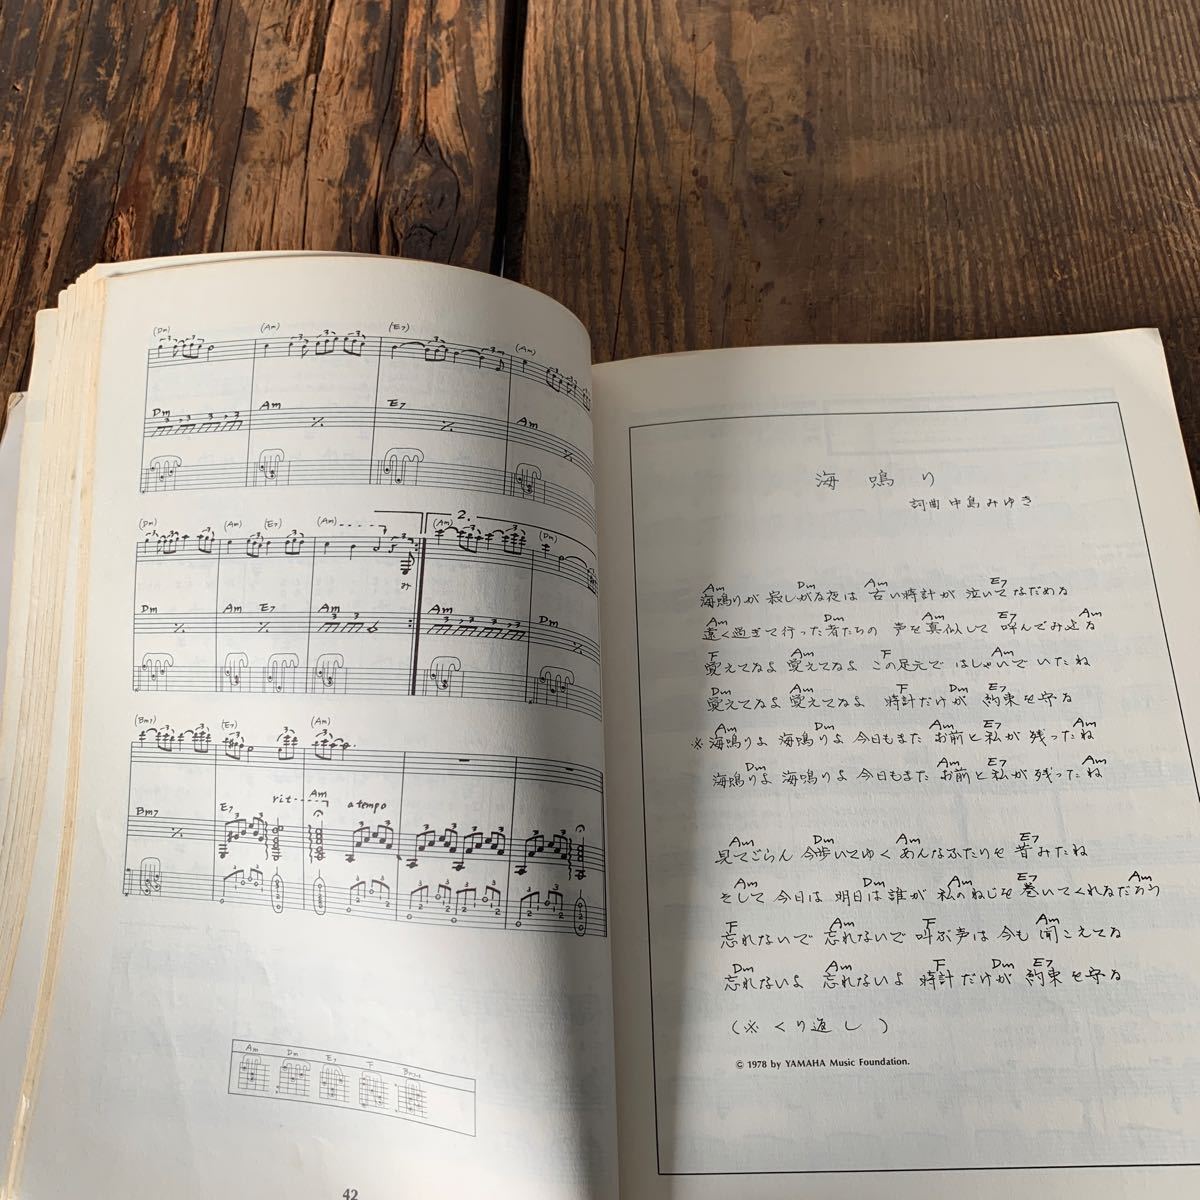 (Dm) (Am) (E7) (Am)
Dm Am E7 Am
(Dm) (Am) (E7) (Am) 2. (Am) (Dm)
み
Dm Am E7 Am Am Dm
(Bm7) (E7) (Am)
rit Am a tempo
Bm7 E7
Am Dm E7 F
42
海鳴り
詞曲 中島みゆき
Am Dm Am E7
海鳴りが 寂しがる夜は 古い時計が 泣いてなだめる
Am Dm Am E7 Am
遠く過ぎて行った者たちの 声を真似して 呼んでみせる
F Am F Am
覚えてるよ 覚えてるよ この足元で はしゃいでいたね
Dm Am F Dm E7
覚えてるよ 覚えてるよ 時計だけが 約束を守る
Am Dm Am E7 Am
※海鳴りよ 海鳴りよ 今日もまた お前と私が 残ったね
Dm Am E7
海鳴りよ 海鳴りよ 今日もまた お前と私が 残ったね
Am Dm Am E7
見てごらん 今歩いてゆく あんなふたりを 昔みたね
Am Dm Am E7 Am
そして今日は 明日は誰が 私のねじを 巻いてくれるだろう
F Am F Am
忘れないで 忘れないで 叫ぶ声は 今も 聞こえてる
Dm Am F Dm E7
忘れないよ 忘れないよ 時計だけが 約束を守る
(※ くり返し)
© 1978 by YAMAHA Music Foundation.